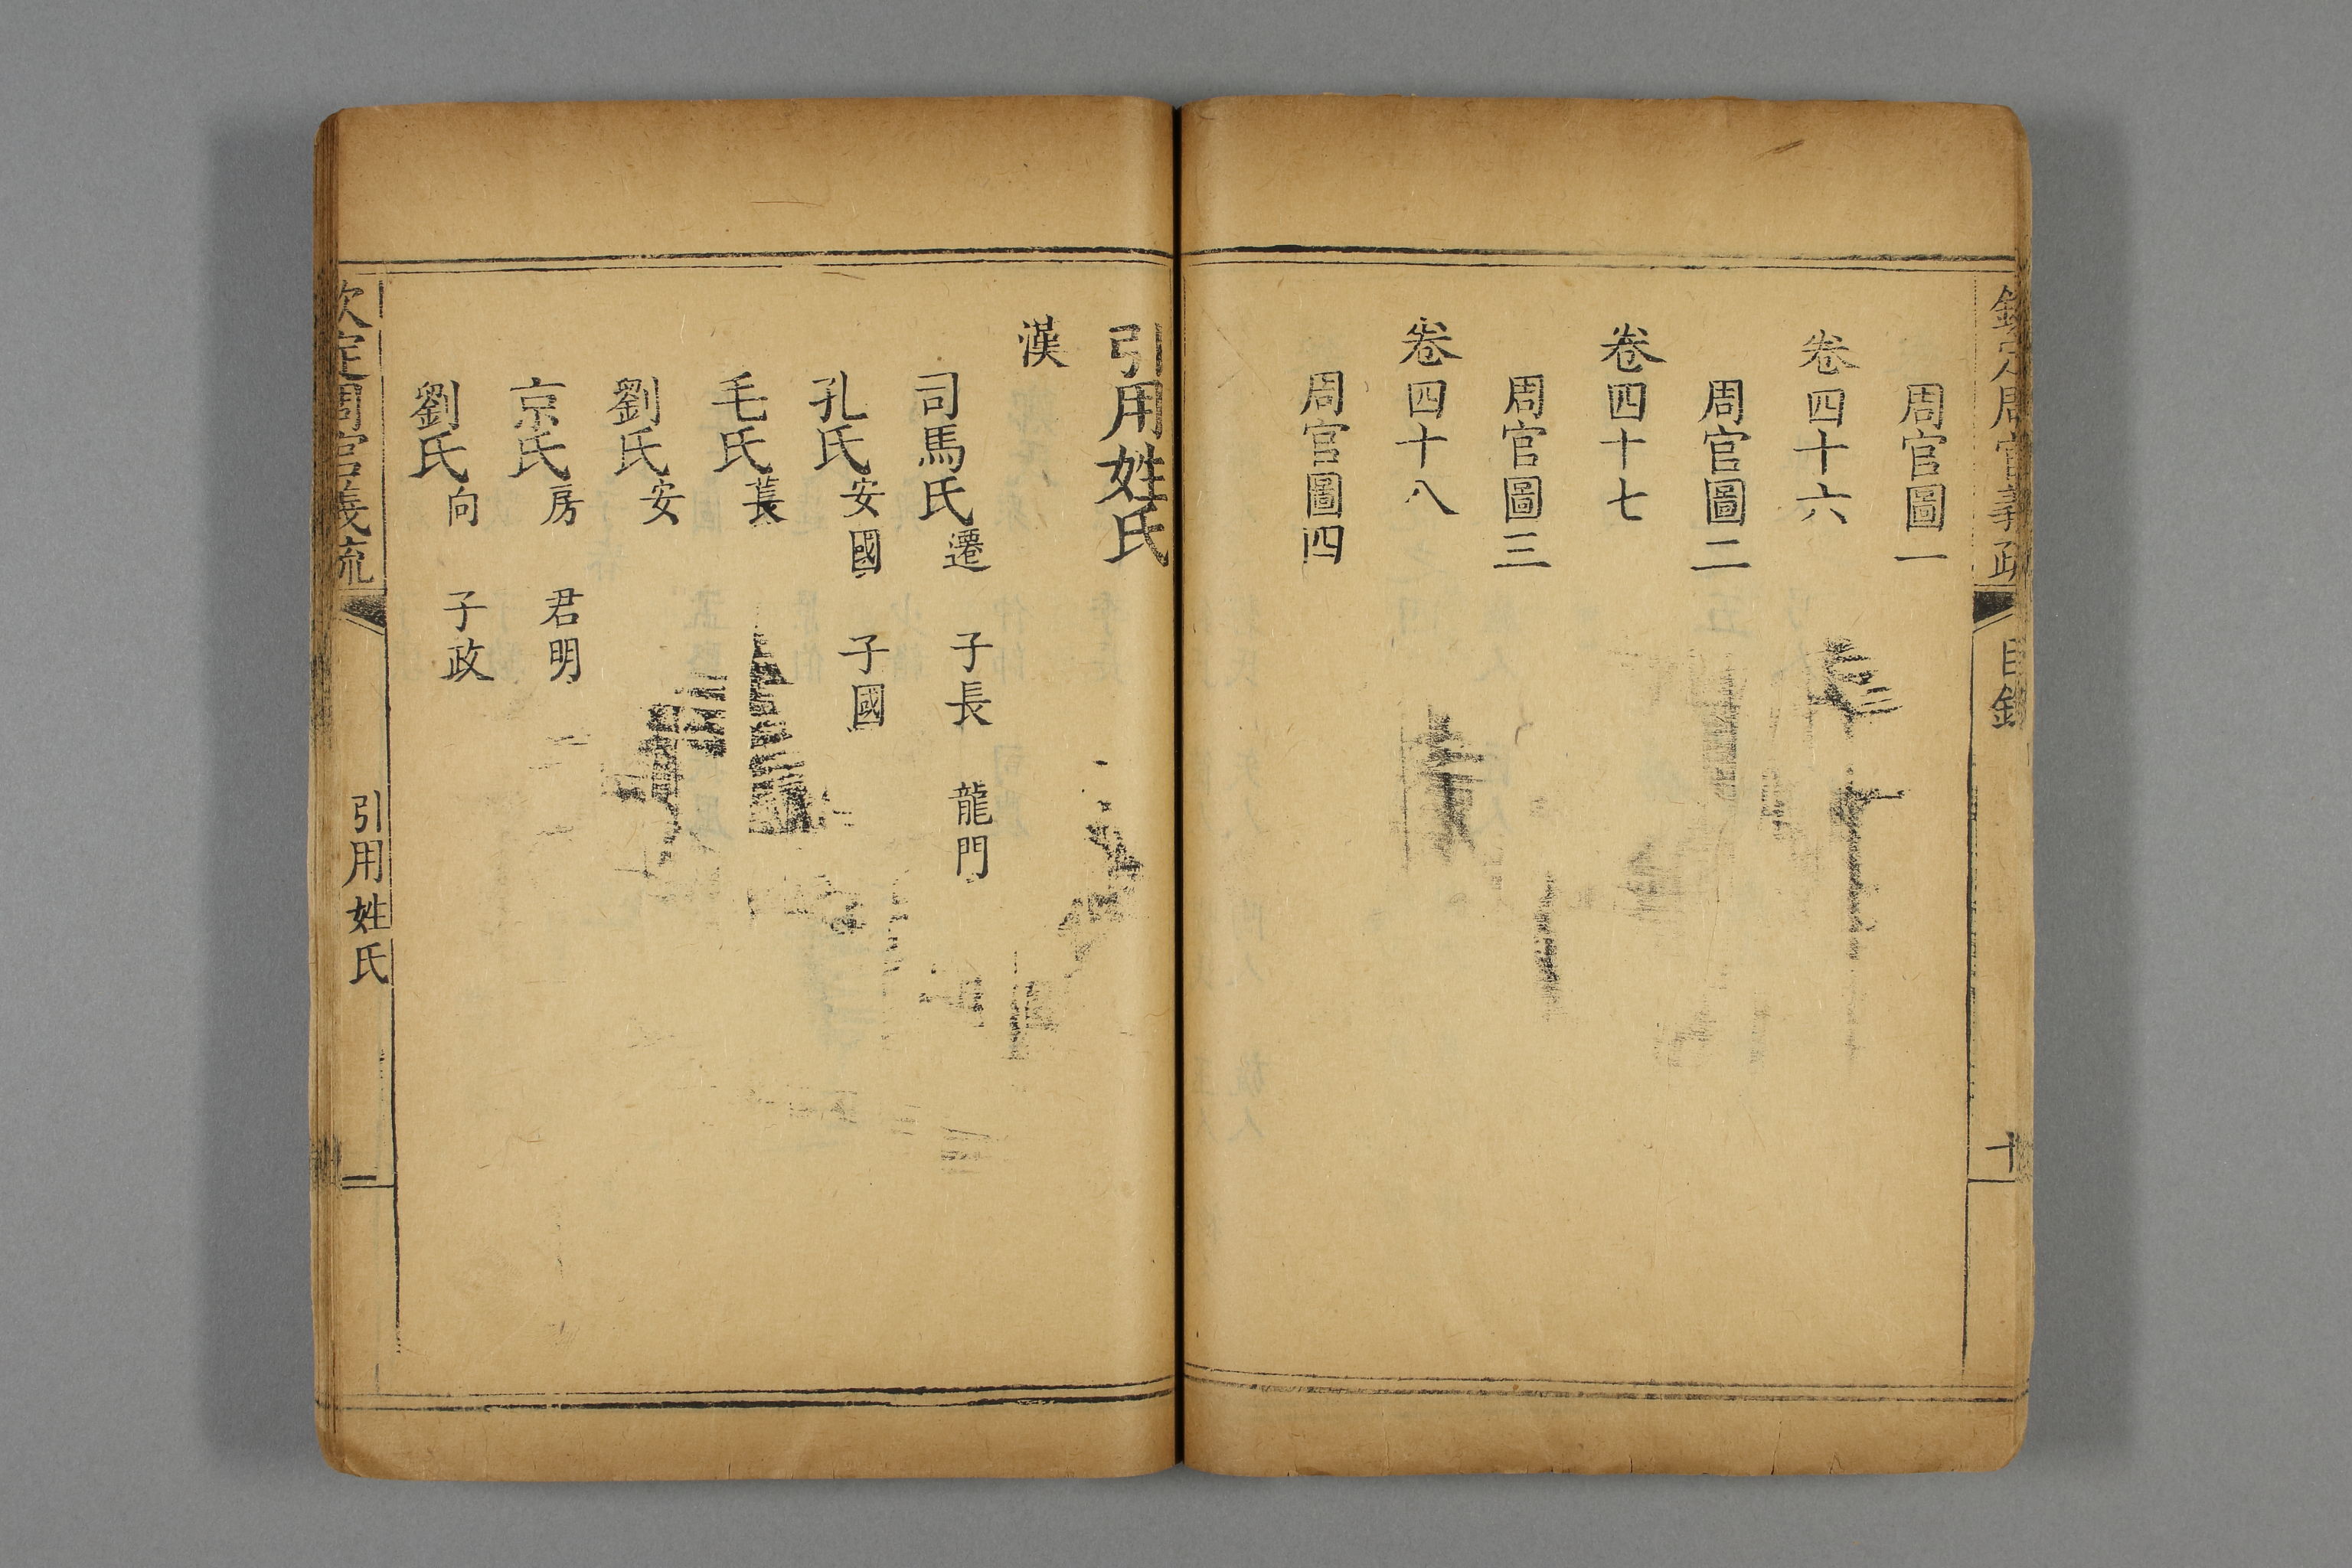 欽定周官義疏 目錄 十
周官圖一
卷四十六
周官圖二
卷四十七
周官圖三
卷四十八
周官圖四
引用姓氏
漢
司馬氏遷 子長 龍門
孔氏安國 子國
毛氏萇
劉氏安
京氏房 君明
劉氏向 子政
欽定周官義疏 引用姓氏 一